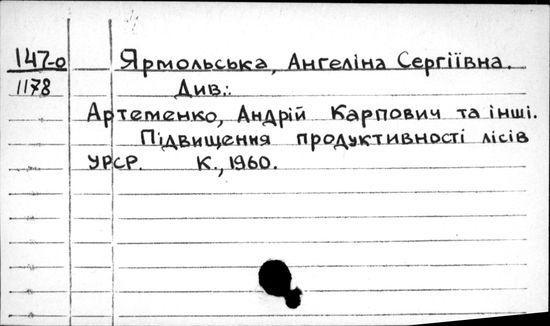 147-о Ярмольська, Ангеліна Сергіївна.
1178 Див.:
Артеменко, Андрій Карпович та інші.
Підвищення продуктивності лісів
УРСР. К., 1960.